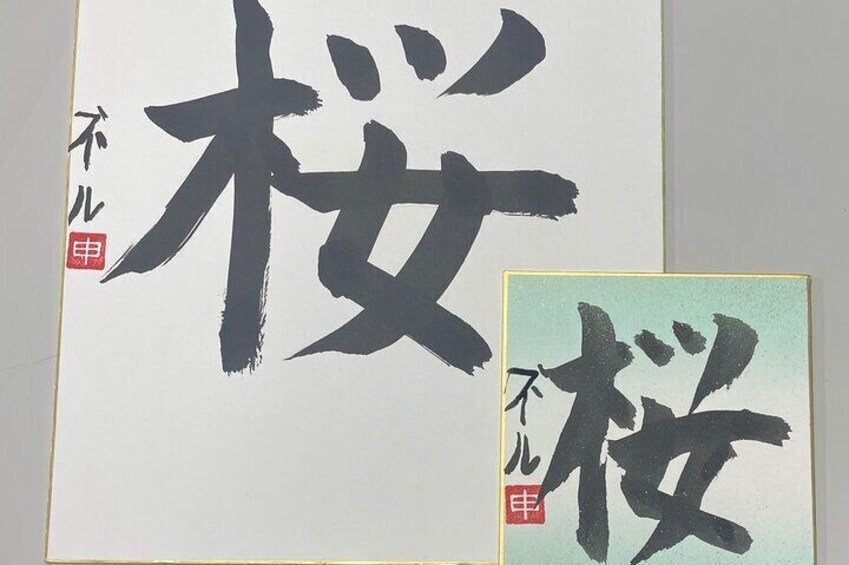 桜
ネル
申
桜
ネル
申